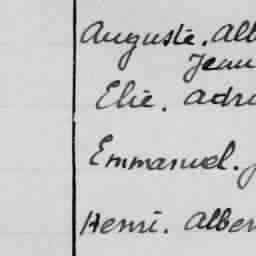 Auguste. Alb
Jean
Elie. Adri
Emmanuel. J
Henri. Alber